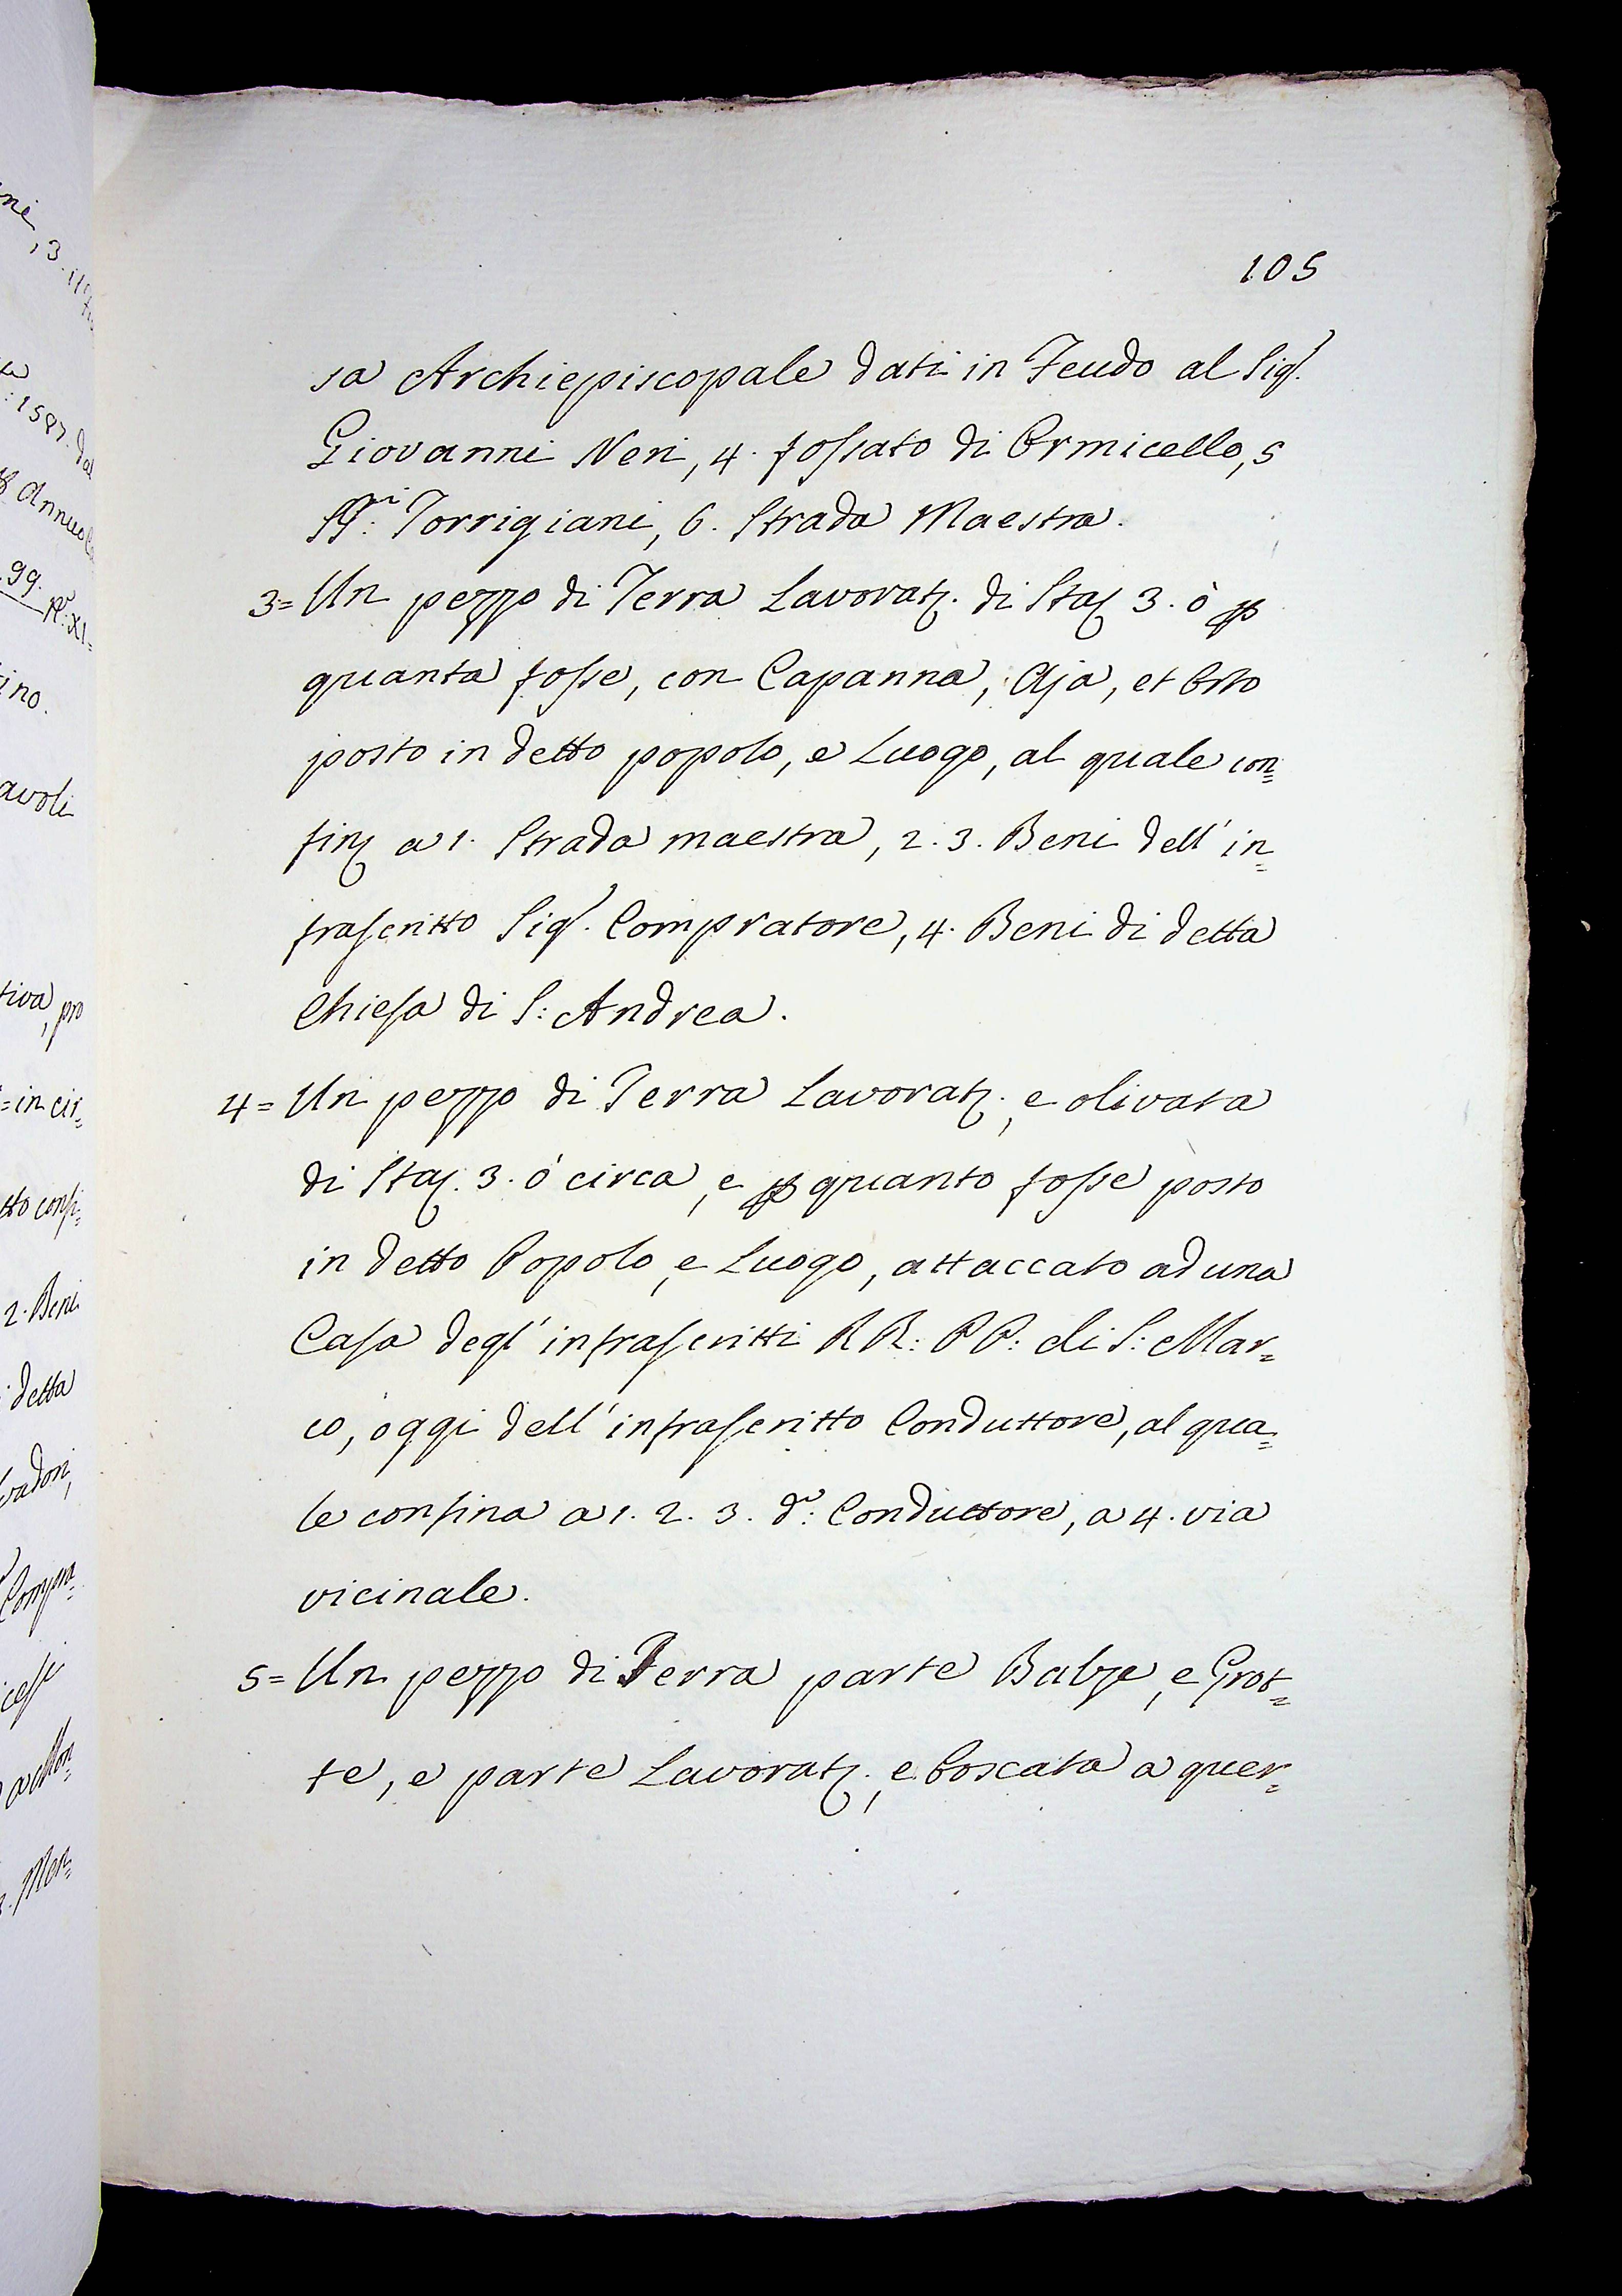 105
sa Archiepiscopale dati in Feudo al Sig.r
Giovanni Neri, 4. fossato di Ormicello, 5
SS.ri Torrigiani, 6. Strada Maestra.
3= Un pezzo di Terra Lavorat. di Sta 3. ò p
quanta fosse, con Capanna, Aja, et Orto
posto in detto popolo, e Luogo, al quale con=
fin a 1. Strada maestra, 2. 3. Beni dell' in=
frascritto Sig.r Compratore, 4. Beni di detta
Chiesa di S: Andrea.
4= Un pezzo di Terra Lavorat., e olivata
di Sta. 3. ò circa, e p quanto fosse posto
in detto Popolo, e Luogo, attaccato ad una
Casa degl' infrascritti RR: PP: di S: Mar=
co, oggi dell' infrascritto Conduttore, al qua=
le confina a 1. 2. 3. d.o: Conduttore, a 4. via
vicinale.
5= Un pezzo di Terra parte Balze, e Grot=
te, e parte Lavorat., e boscata a quer=